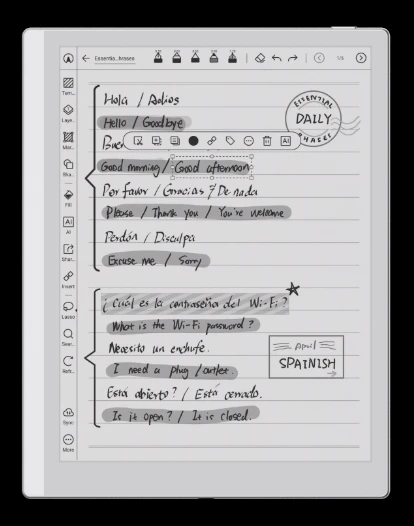 Essentia...hrases
1/3
Hola / Adios
Hello / Goodbye
Buen
Good morning / Good afternoon
Por favor / Gracias / De nada
Please / Thank you / You're welcome
Perdón / Disculpa
Excuse me / Sorry
ESSENTIAL
DAILY
PHASES
¿Cuál es la contraseña del Wi-Fi?
What is the Wi-Fi password?
Necesito un enchufe.
I need a plug /outlet.
Está abierto? / Está cerrado.
Is it open? / It is closed.
April
SPAINISH
Tem...
Laye...
Mar...
Sha...
Fill
AI
AI
Shar...
Insert
Lasso
Sear...
Refr...
Sync
More
AI